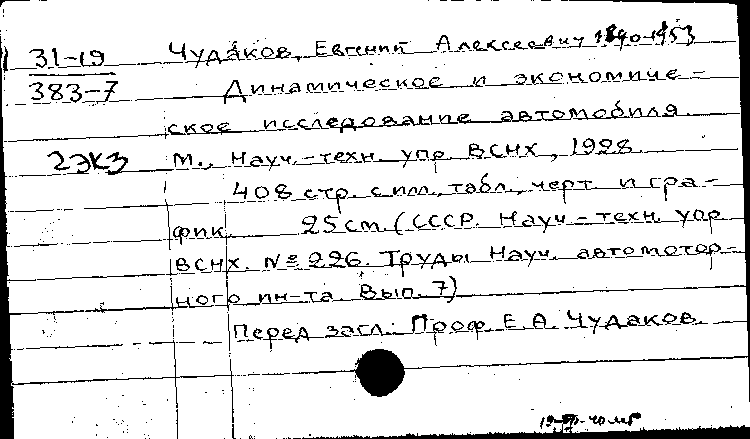 31-19 Чудаков, Евгений Алексеевич 1890-1953
383-7 Динамическое и экономиче-
ское исследование автомобиля.
2ЭКЗ М., Науч.-техн. упр. ВСНХ, 1928.
408 стр. с илл., табл., черт. и гра-
фик. 25 см. (СССР. Науч-техн. упр.
ВСНХ. № 226. Труды Науч. автомотор-
ного ин-та. Вып. 7)
Перед загл.: Проф. Е. А. Чудаков.